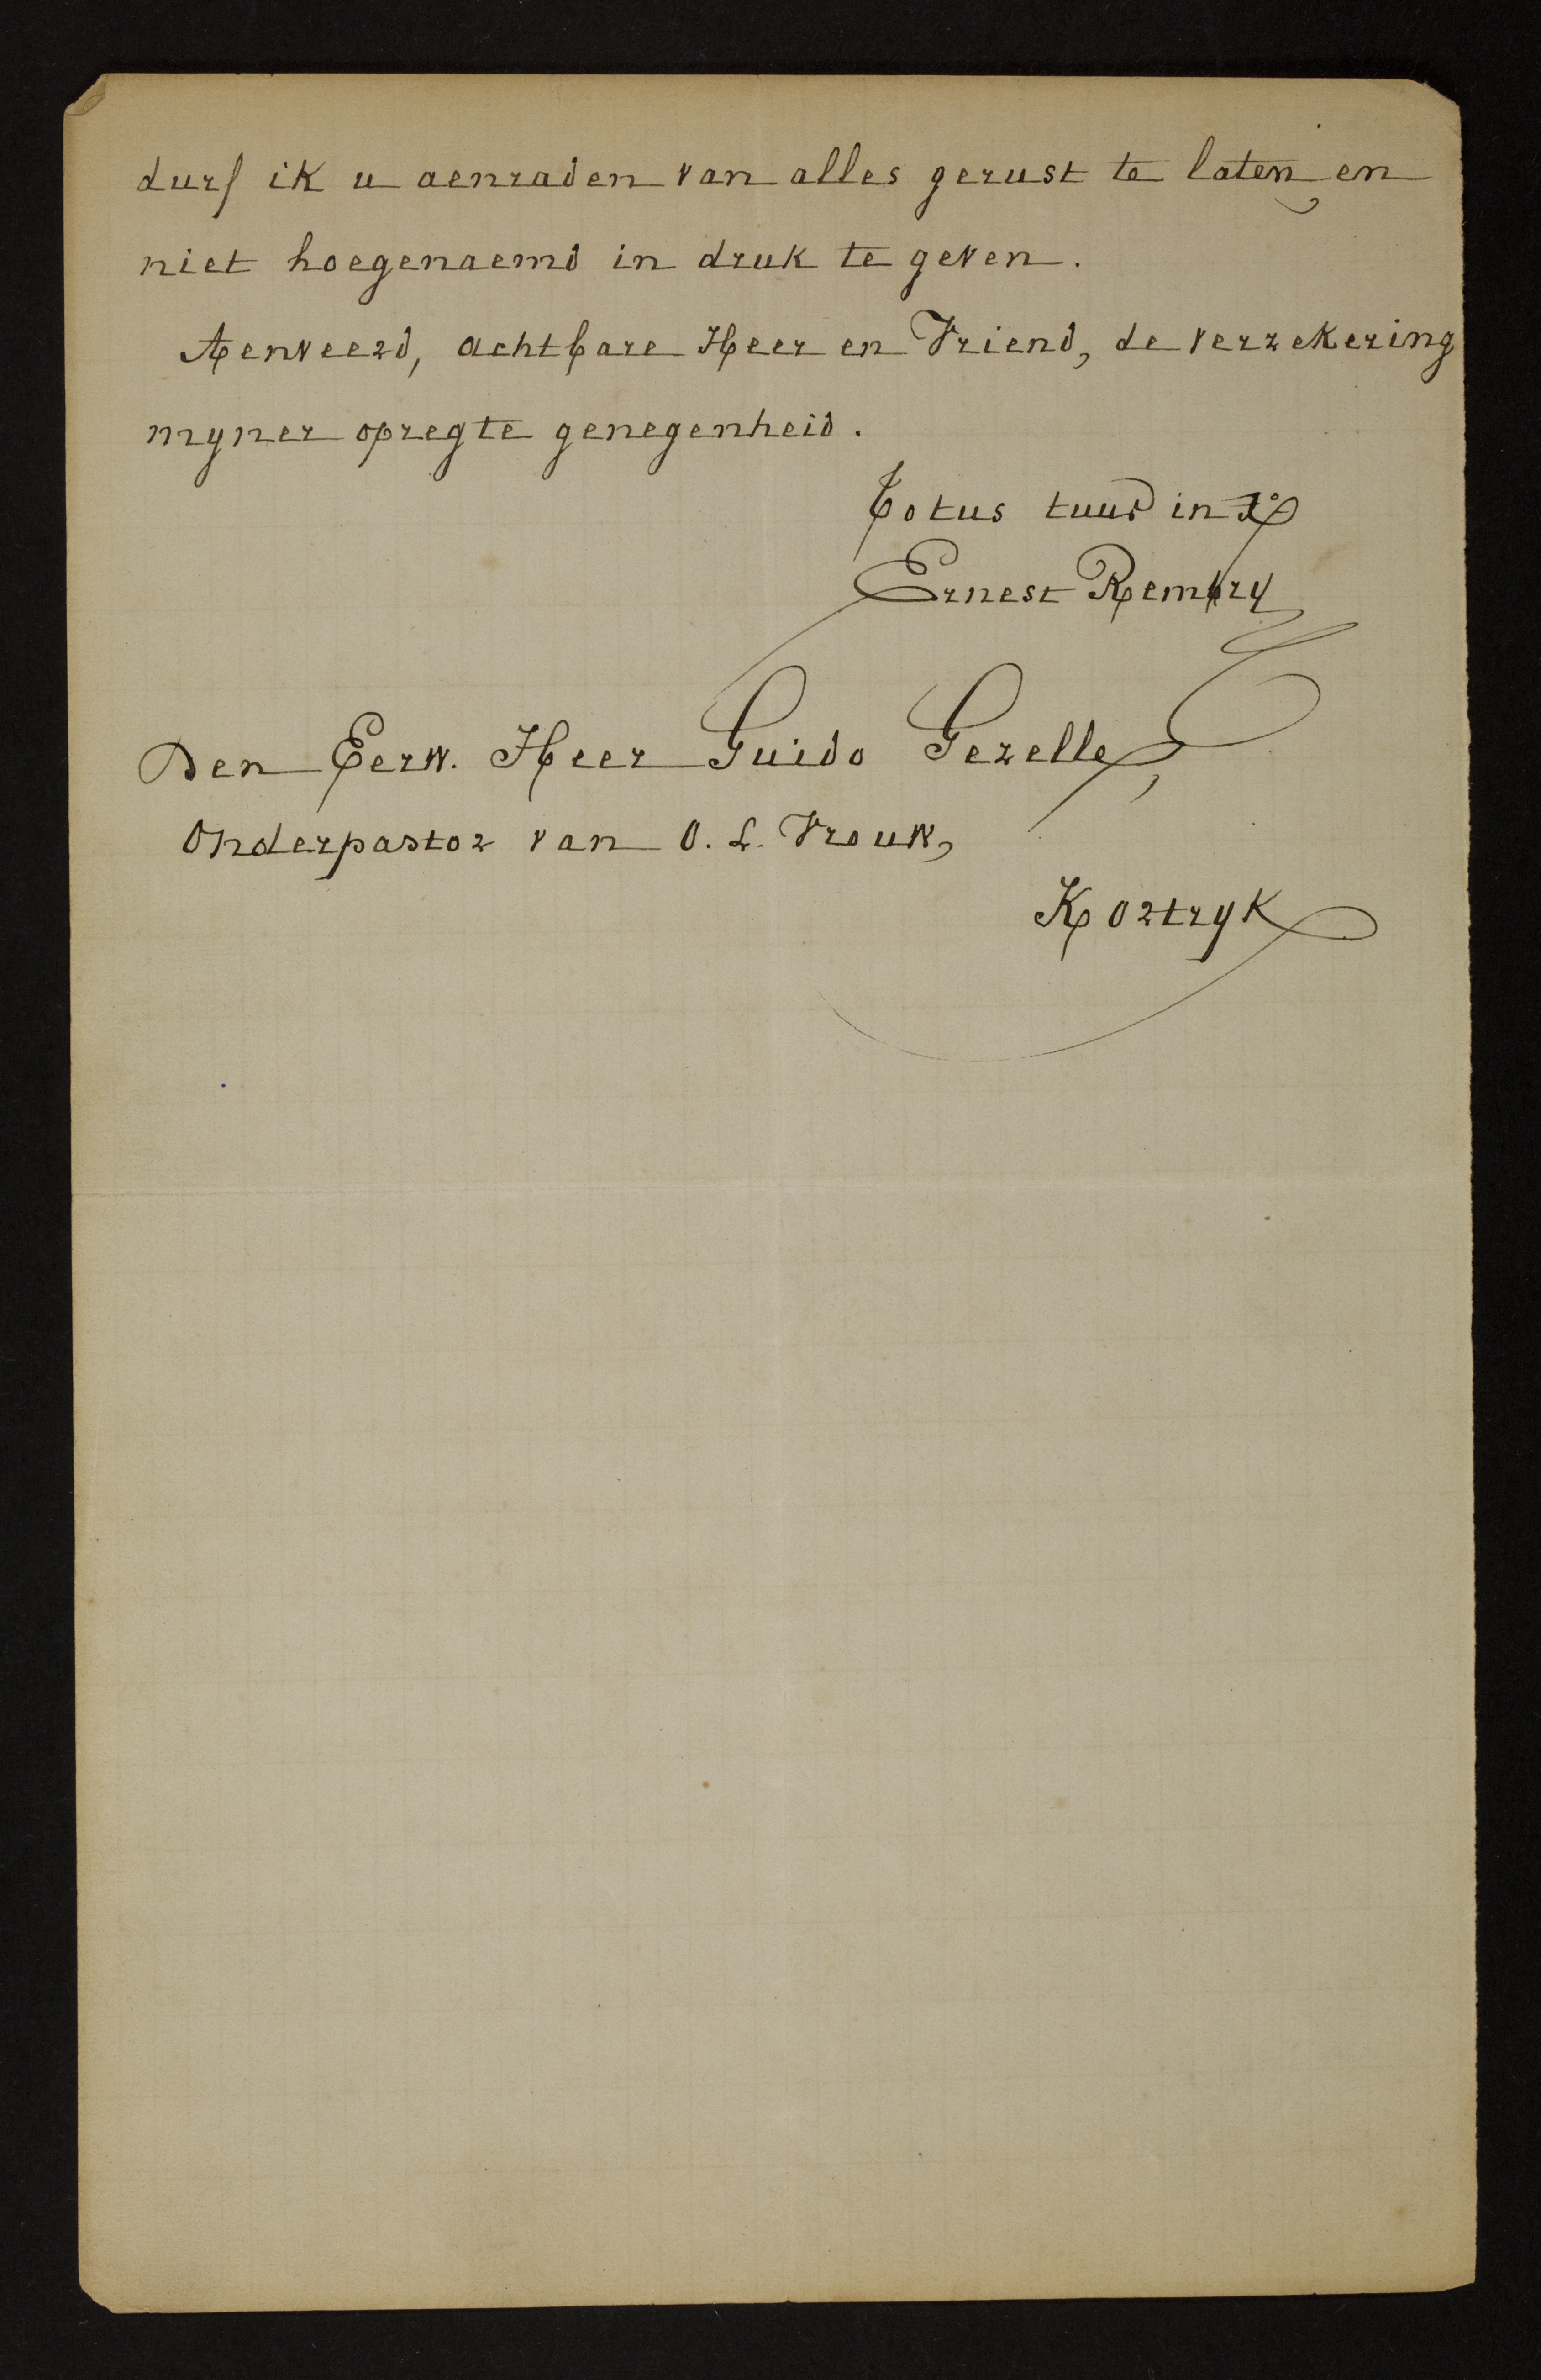 durf ik u aenraden van alles gerust te laten en
niet hoegenaemd in druk te geven.
Aenveerd, achtbare Heer en Vriend, de verzekering
myner opregte genegenheid.
Totus tuus in Xº
Ernest Rembry
Den Eerw. Heer Guido Gezelle,
Onderpastor van O. L. Vrouw,
Kortryk